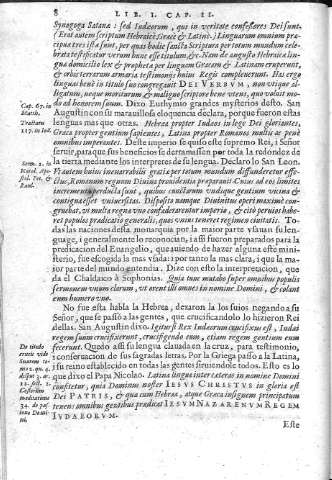 8 LIB. I. CAP. II.
Synagoga Satana : sed Iudaeorum, qui in veritate confessores Dei sunt.
( Erat autem scriptum Hebraicè, Graecè & Latinè.) Linguarum omnium prae-
cipua tres ista sunt, per quas hodie sancta Scriptura per totum mundum cele-
brata testificatur verum huic esse titulum, &c. Nam de angusto Hebraica lin-
gua domicilio lex & propheta per linguam Graecam & Latinam eruperunt,
& orbis terrarum armaria testimonijs huius Regis compleverunt. Has ergo
linguas benè in titulo suo congregavit DEI VERBVM,
do ad honorem suum. Dixo Euthymio grandes mysterios desto. San
Cap. 67. in
Marcū.
Tractatu
117. in Ioā.
Augustin con su maravillosa eloquencia declara, porque fueron estas
lenguas mas que otras. Hebraea propter Iudaeos in lege Dei gloriantes,
Graeca propter gentium sapientes, Latina propter Romanos multis ac penè
omnibus imperantes. Deste imperio se quiso este supremo Rei, i Señor
servir, para que sus beneficios se derramassen por toda la redondez de
la tierra mediante los interpretes de su lengua. Declaro lo San Leon.
Serm. 1. in
Natal. Apo-
stol. Pet. &
Paul.
Vt autem huius inenarrabilis gratiae per totum mundum diffunderetur effe-
ctus, Romanum regnum Divina providentia praeparavit. Cuius ad eos limites
incrementa perducta sunt, quibus cunctarum undique gentium vicina &
contigua esset vniversitas. Disposito namque Divinitus operi maximè con-
gruebat, vt multa regna vno confoederarentur imperio, & citò pervios habe-
ret populos praedicatio generalis, quos vnius teneret regimen civitatis. To-
das las naciones desta monarquia por la maior parte vsauan su len-
guage, i generalmente lo reconocian, i assi fueron preparados para la
predicacion del Evangelio, que auiendo de hazer alguna este minis-
terio, fue escogida la mas vsada : por tanto la mas clara, i que la ma-
ior parte del mundo entendia. Dize con esto la interpretacion, que
da el Chaldaico à Sophonias. Quia nunc mutabo super omnibus populis
sermonem vnum clarum, vt orent illi omnes in nomine Domini, & colant
eum humero vno.
No fue esta habla la Hebrea, dexaron la los suios negando a su
Señor, que se passò a las gentes, que crucificandolo lo hizieron Rei
dellas. San Augustin dixo. Igitur si Rex Iudaeorum crucifixus est, Iudaei
regem suum crucifixerunt, crucifigendo eum, etiam regem gentium eum
fecerunt. Quedò assi su lengua clauada en la cruz, para testimonio,
i conservacion de sus sagradas letras. Por la Griega passò a la Latina,
i su reino establecido en todas las gentes siruiendole todos. Esto es lo
que dixo el Papa Nicolao. Latina lingua inter caeteras in nomine Domini
confitetur, quia Dominus noster IESVS CHRISTVS in gloria est
DEI PATRIS, & qua cum Hebraea, atque Graeca insigneum principatum
tenens omnibus gentibus praedicat IESVM NAZARENVM REGEM
IVDAEORVM.
De titulo
crucis vide
Este